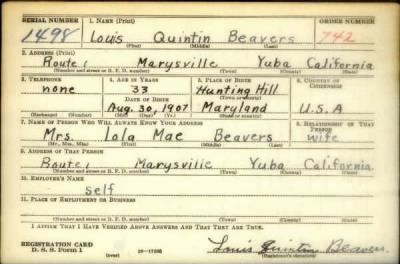 SERIAL NUMBER 1. NAME (Print) ORDER NUMBER
1498 Louis Quintin Beavers 742
(First) (Middle) (Last)
2. ADDRESS (Print)
Route 1 Marysville Yuba California
(Number and street or R. F. D. number) (Town) (County) (State)
3. TELEPHONE 4. AGE IN YEARS 5. PLACE OF BIRTH 6. COUNTRY OF CITIZENSHIP
none 33 Hunting Hill
DATE OF BIRTH (Town or county)
Aug. 30, 1907 Maryland U.S.A
(Mo.) (Day) (Yr.) (State or country)
7. NAME OF PERSON WHO WILL ALWAYS KNOW YOUR ADDRESS 8. RELATIONSHIP OF THAT PERSON
Mrs. Lola Mae Beavers wife
(Mr., Mrs., Miss) (First) (Middle) (Last)
9. ADDRESS OF THAT PERSON
Route 1 Marysville Yuba California
(Number and street or R. F. D. number) (Town) (County) (State)
10. EMPLOYER'S NAME
self
11. PLACE OF EMPLOYMENT OR BUSINESS
(Number and street or R. F. D. number) (Town) (County) (State)
I AFFIRM THAT I HAVE VERIFIED ABOVE ANSWERS AND THAT THEY ARE TRUE.
REGISTRATION CARD
D. S. S. Form 1 (over) Louis Quintin Beavers
(Registrant's signature)